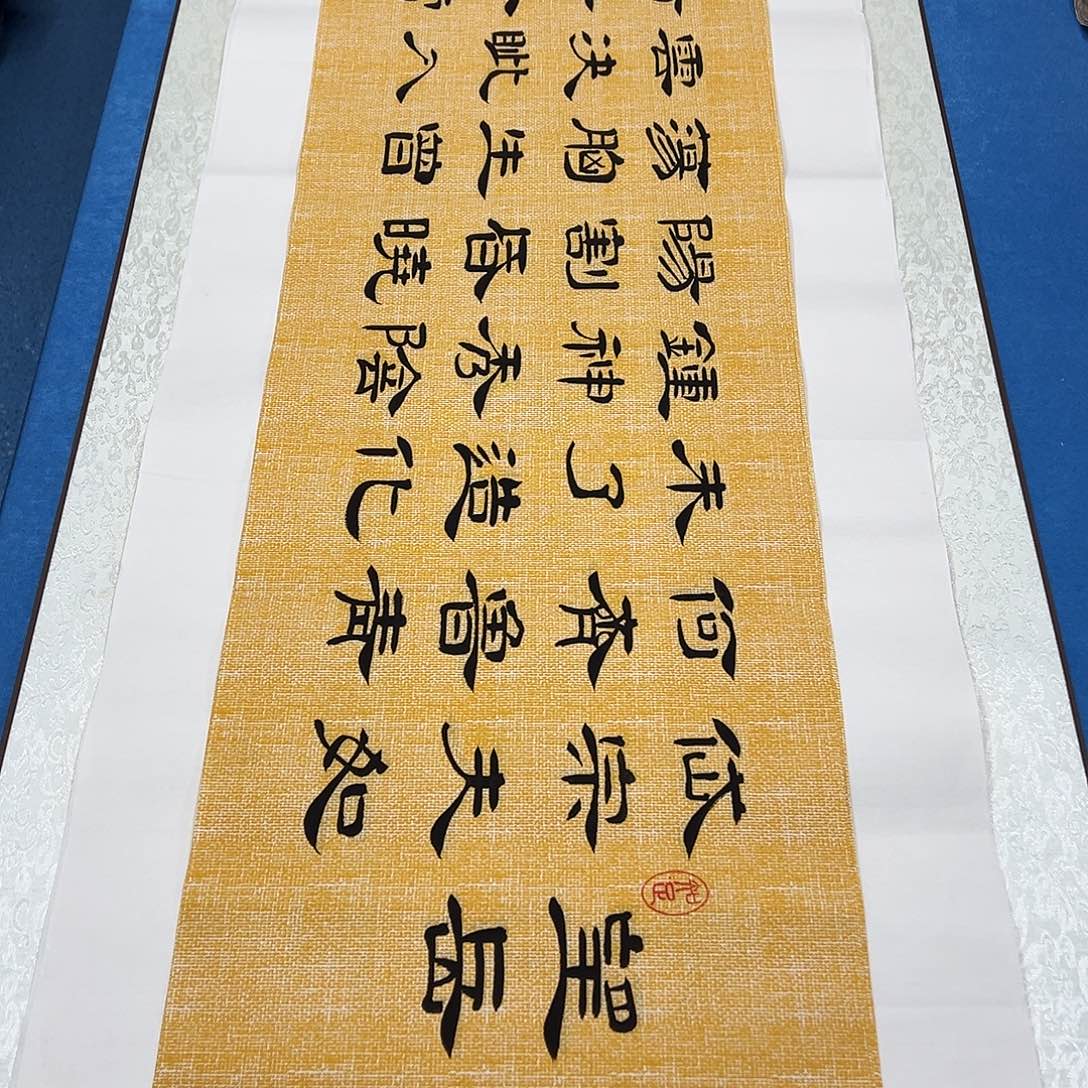 望岳
岱宗夫如
何齊魯青
未了造化
鍾神秀陰
陽割昏曉
蕩胸生曾
雲決眦入